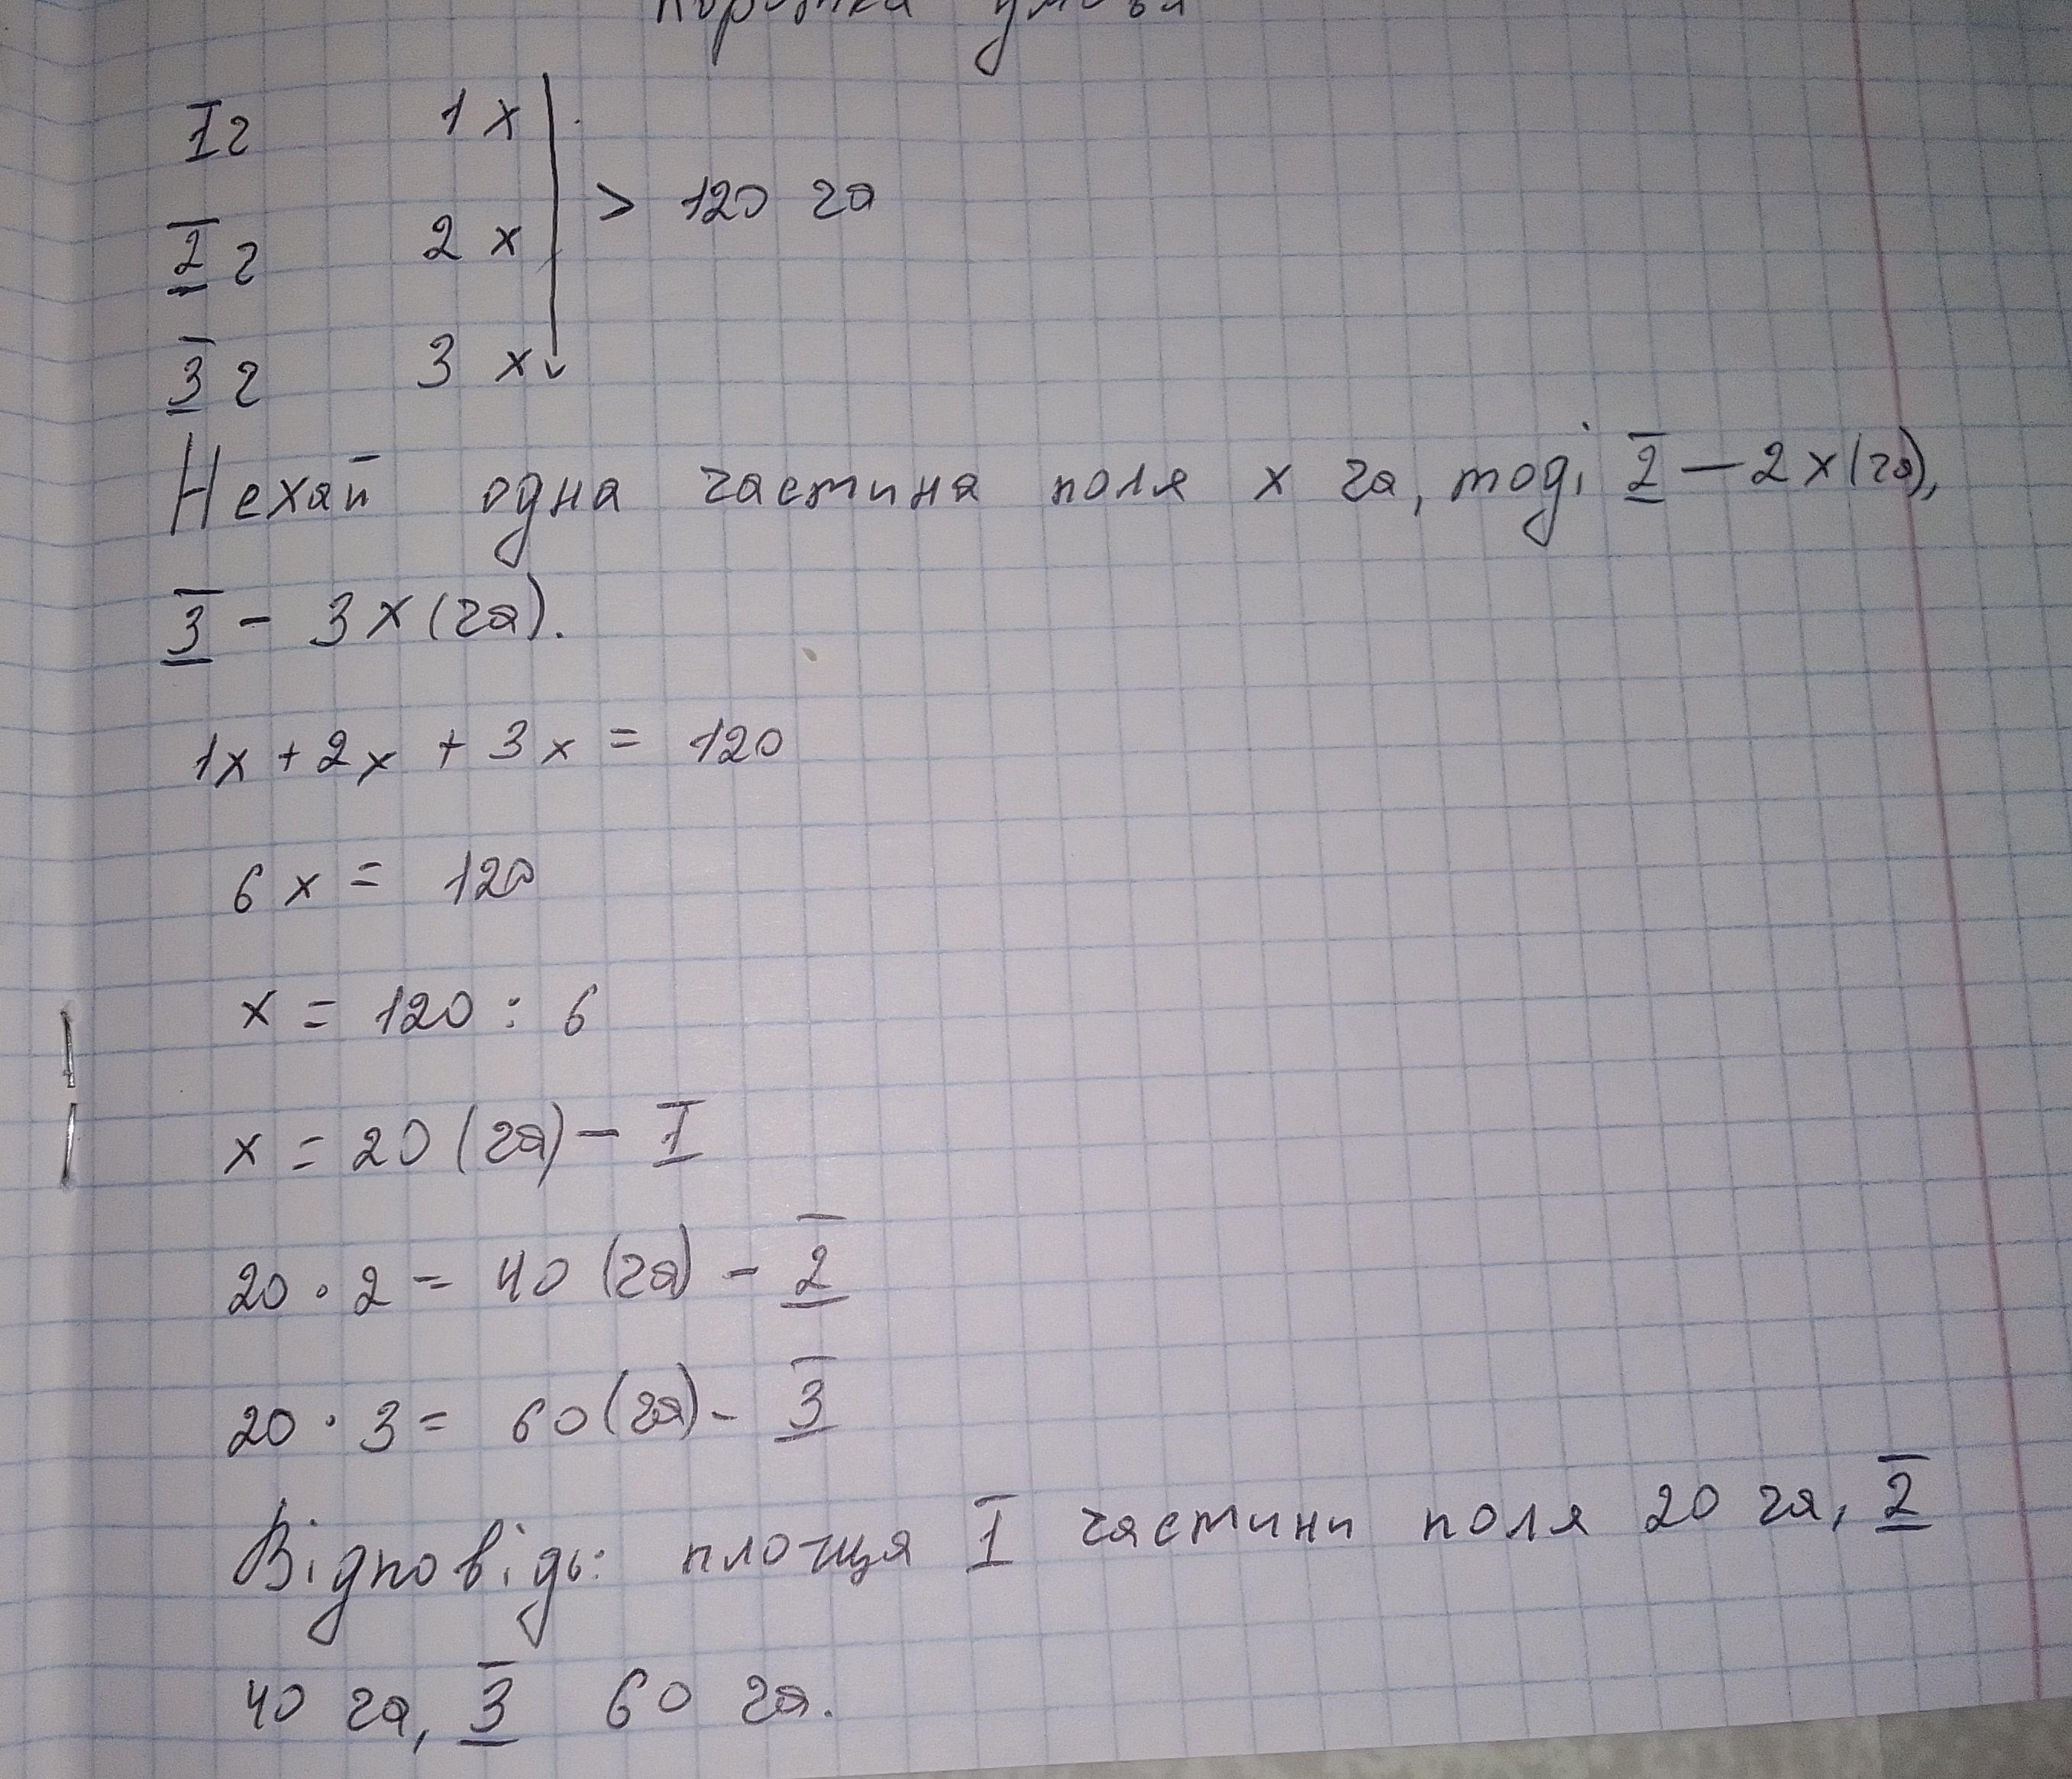 Коротка умова
I г 1 x
2 г 2 x > 120 га
3 г 3 x
Нехай одна частина поля x га, тоді 2 — 2 x (га),
3 - 3 x (га).
1x + 2x + 3x = 120
6 x = 120
x = 120 : 6
x = 20 (га) - I
20 · 2 = 40 (га) - 2
20 · 3 = 60 (га) - 3
Відповідь: площа I частини поля 20 га, 2
40 га, 3 60 га.